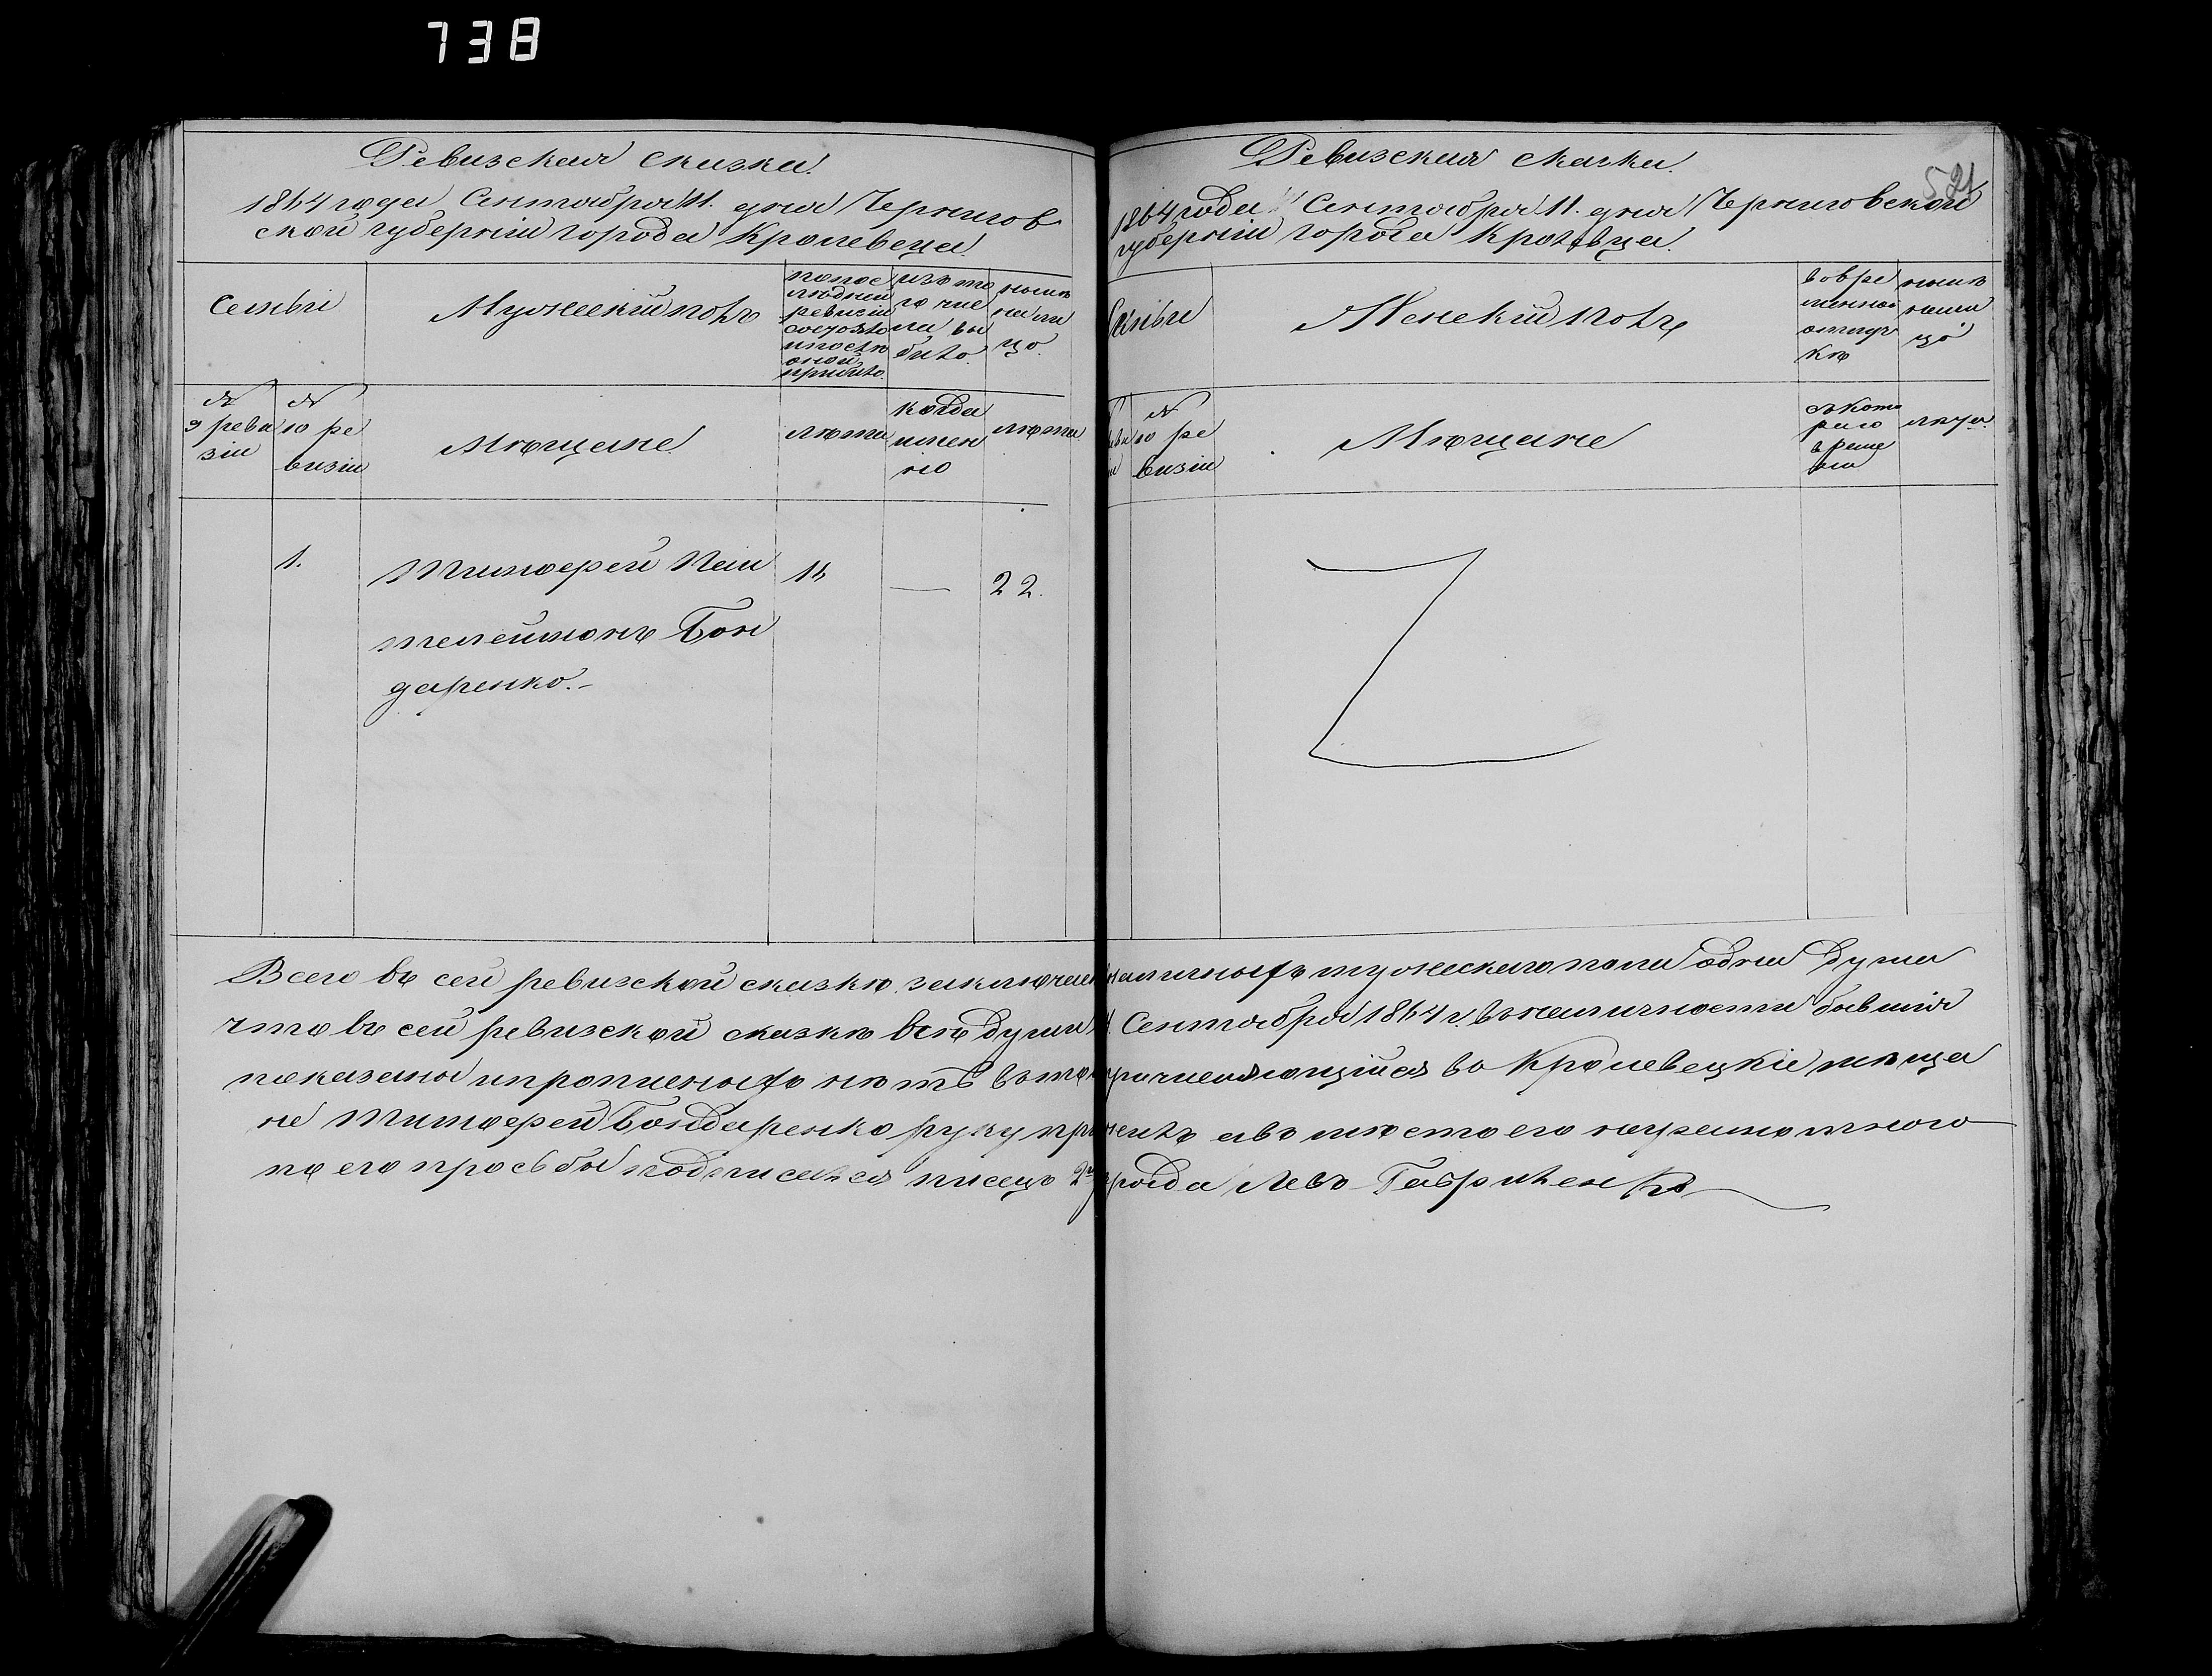 738
Ревизская сказка.
1864 года Сентября 11. дня Чернигов
ской губерніи города Кролевеца.
Семьи
Мужескій полъ
после
ревизіи
изъ то
го чис
ла вы
было.
ныне
на ли
цо.
№
9 реви
зіи
№
10 ре
визіи
Мещане
лета
когда
имен
но
лета
1.
Тимофей Пан
16
—
22.
телеймонъ Бон
даренко.-
Ревизская сказка.
521
1864 года 11 Сентября 11. дня Черниговской
губерніи города Кролевца.
Семьи
Женскій полъ
во вре
менной
отлуч
ке
ныне
нали
цо
№
10 ре
визіи
Мещане
съ кото
раго
време
ни
лета
Всего въ сей ревизской сказкѣ заключаен наличныхъ мужескаго пола одна душа
что въ сей ревизской сказкѣ всѣ души 11 Сентября 1864 г. въ наличности бывшія
показаны и прописныхъ нѣтъ въ том причисляющійся въ Кролевецкіе меща
не Тимофей Бондаренко руку при а вместо его неграмотнаго
по его прозьбы подписался писецъ 2го розряда Левъ Гавриленко